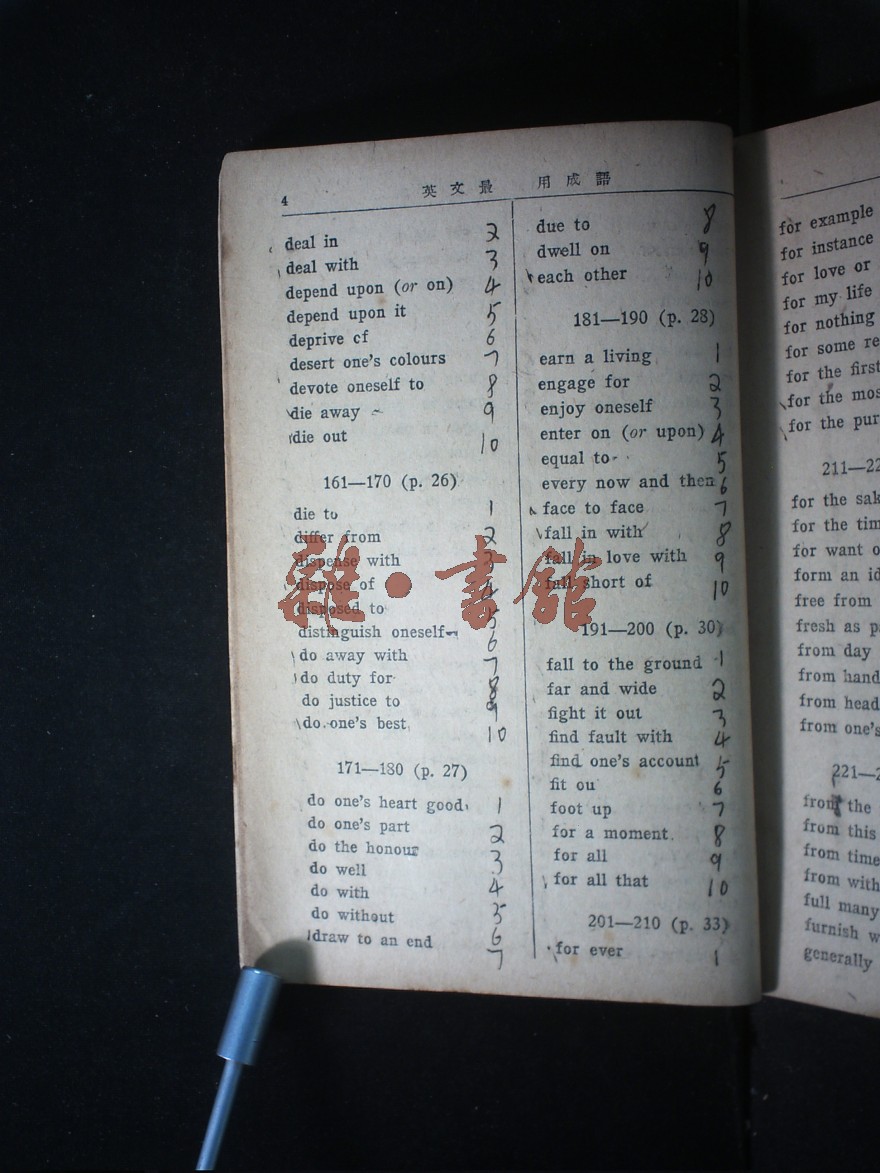 4
英文最 用成語
deal in 2
deal with 3
depend upon (or on) 4
depend upon it 5
deprive cf 6
desert one's colours 7
devote oneself to 8
die away 9
die out 10
161—170 (p. 26)
die to 1
differ from 2
dispense with 3
dispose of 4
disposed to 5
distinguish oneself 6
do away with 7
do duty for 8
do justice to 9
do one's best 10
171—180 (p. 27)
do one's heart good 1
do one's part 2
do the honour 3
do well 4
do with 5
do without 6
draw to an end 7
due to 8
dwell on 9
each other 10
181—190 (p. 28)
earn a living 1
engage for 2
enjoy oneself 3
enter on (or upon) 4
equal to 5
every now and then 6
face to face 7
fall in with 8
fall in love with 9
fall short of 10
191—200 (p. 30)
fall to the ground 1
far and wide 2
fight it out 3
find fault with 4
find one's account 5
fit ou 6
foot up 7
for a moment 8
for all 9
for all that 10
201—210 (p. 33)
for ever 1
for example
for instance
for love or
for my life
for nothing
for some re
for the first
for the mos
for the pur
211—22
for the sak
for the tim
for want o
form an id
free from
fresh as p
from day
from hand
from head
from one's
221—2
from the
from this
from time
from with
full many
furnish w
generally
雜·書館